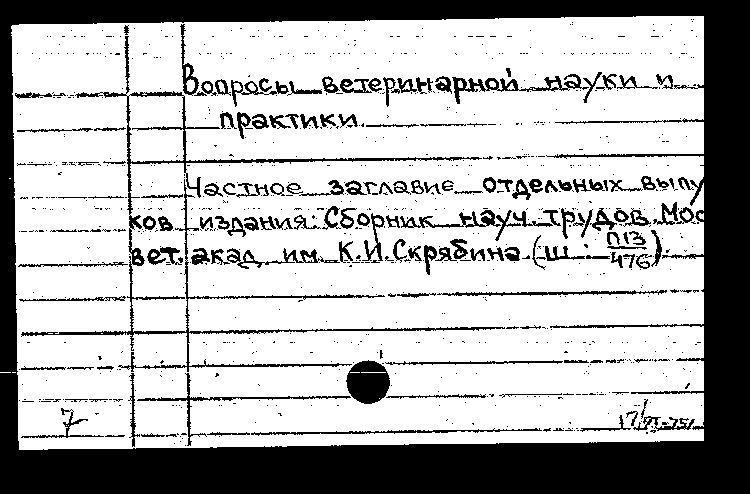 Вопросы ветеринарной науки и
практики.
Частное заглавие отдельных выпу
ков издания: Сборник науч. трудов. Мос
вет. акад. им. К.И. Скрябина (Ш : П13/476).
7